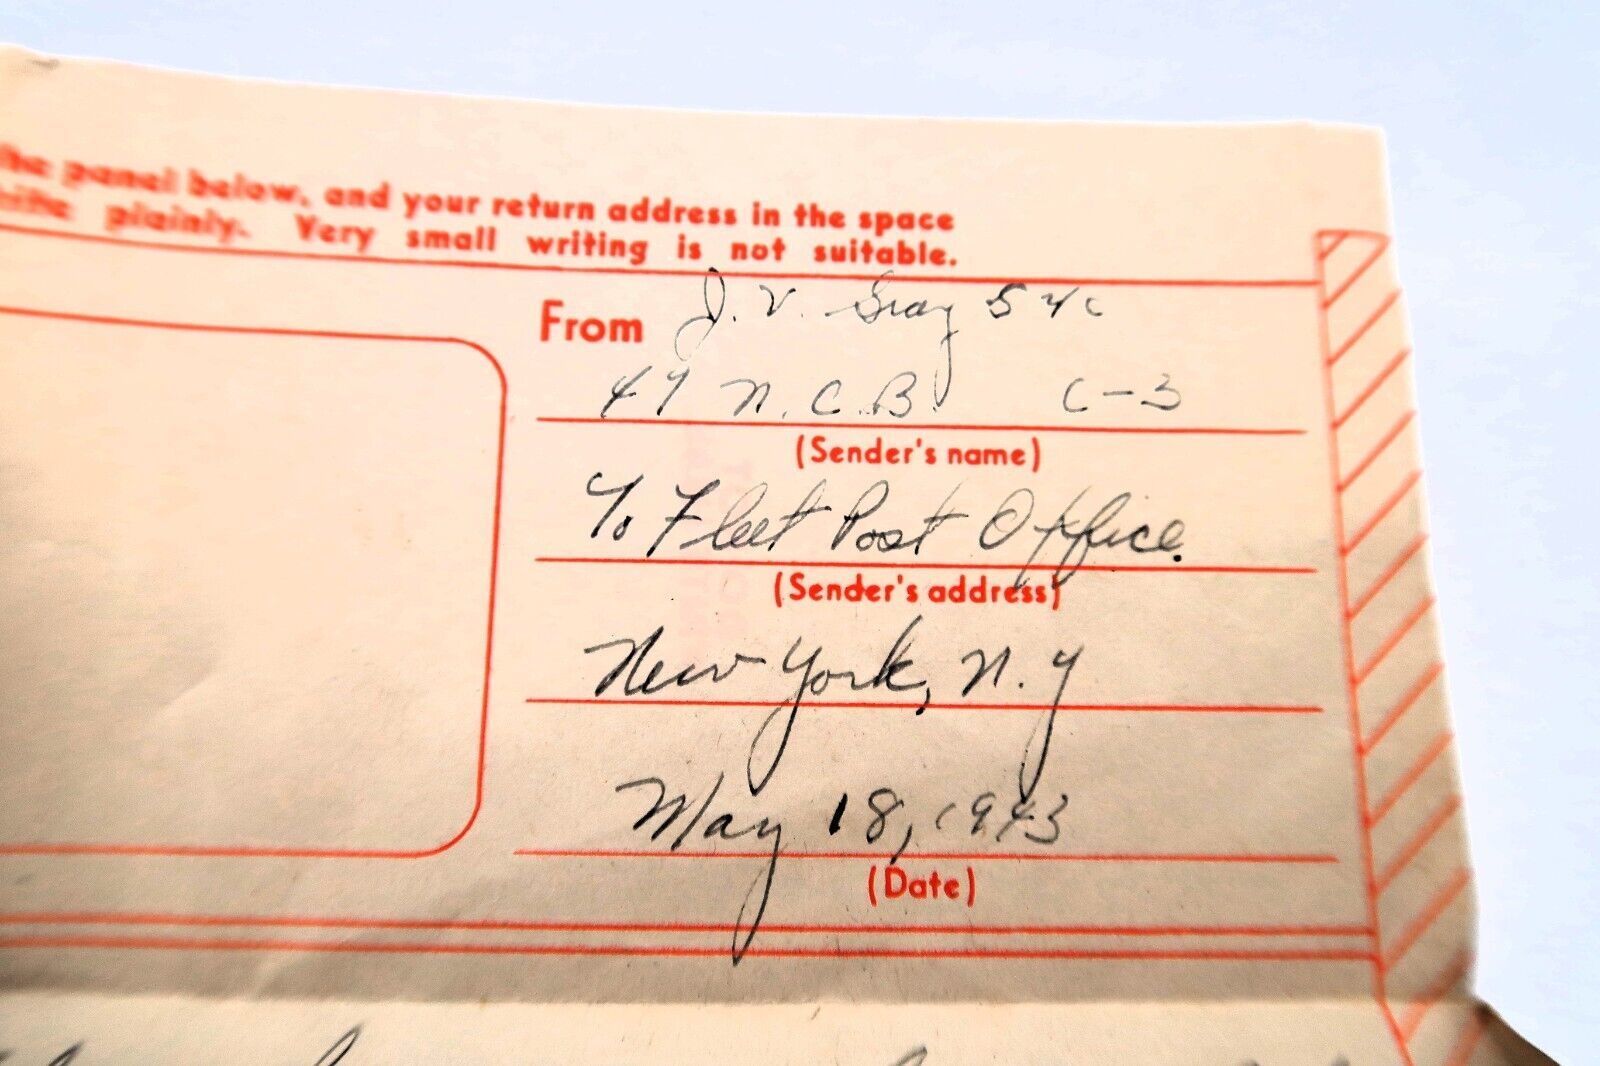 he panel below, and your return address in the space
rite plainly. Very small writing is not suitable.
From J. V. Gray S 2/c
49 N.C.B. C-3
(Sender's name)
℅ Fleet Post Office.
(Sender's address)
New York, N.Y
May 18, 1943
(Date)